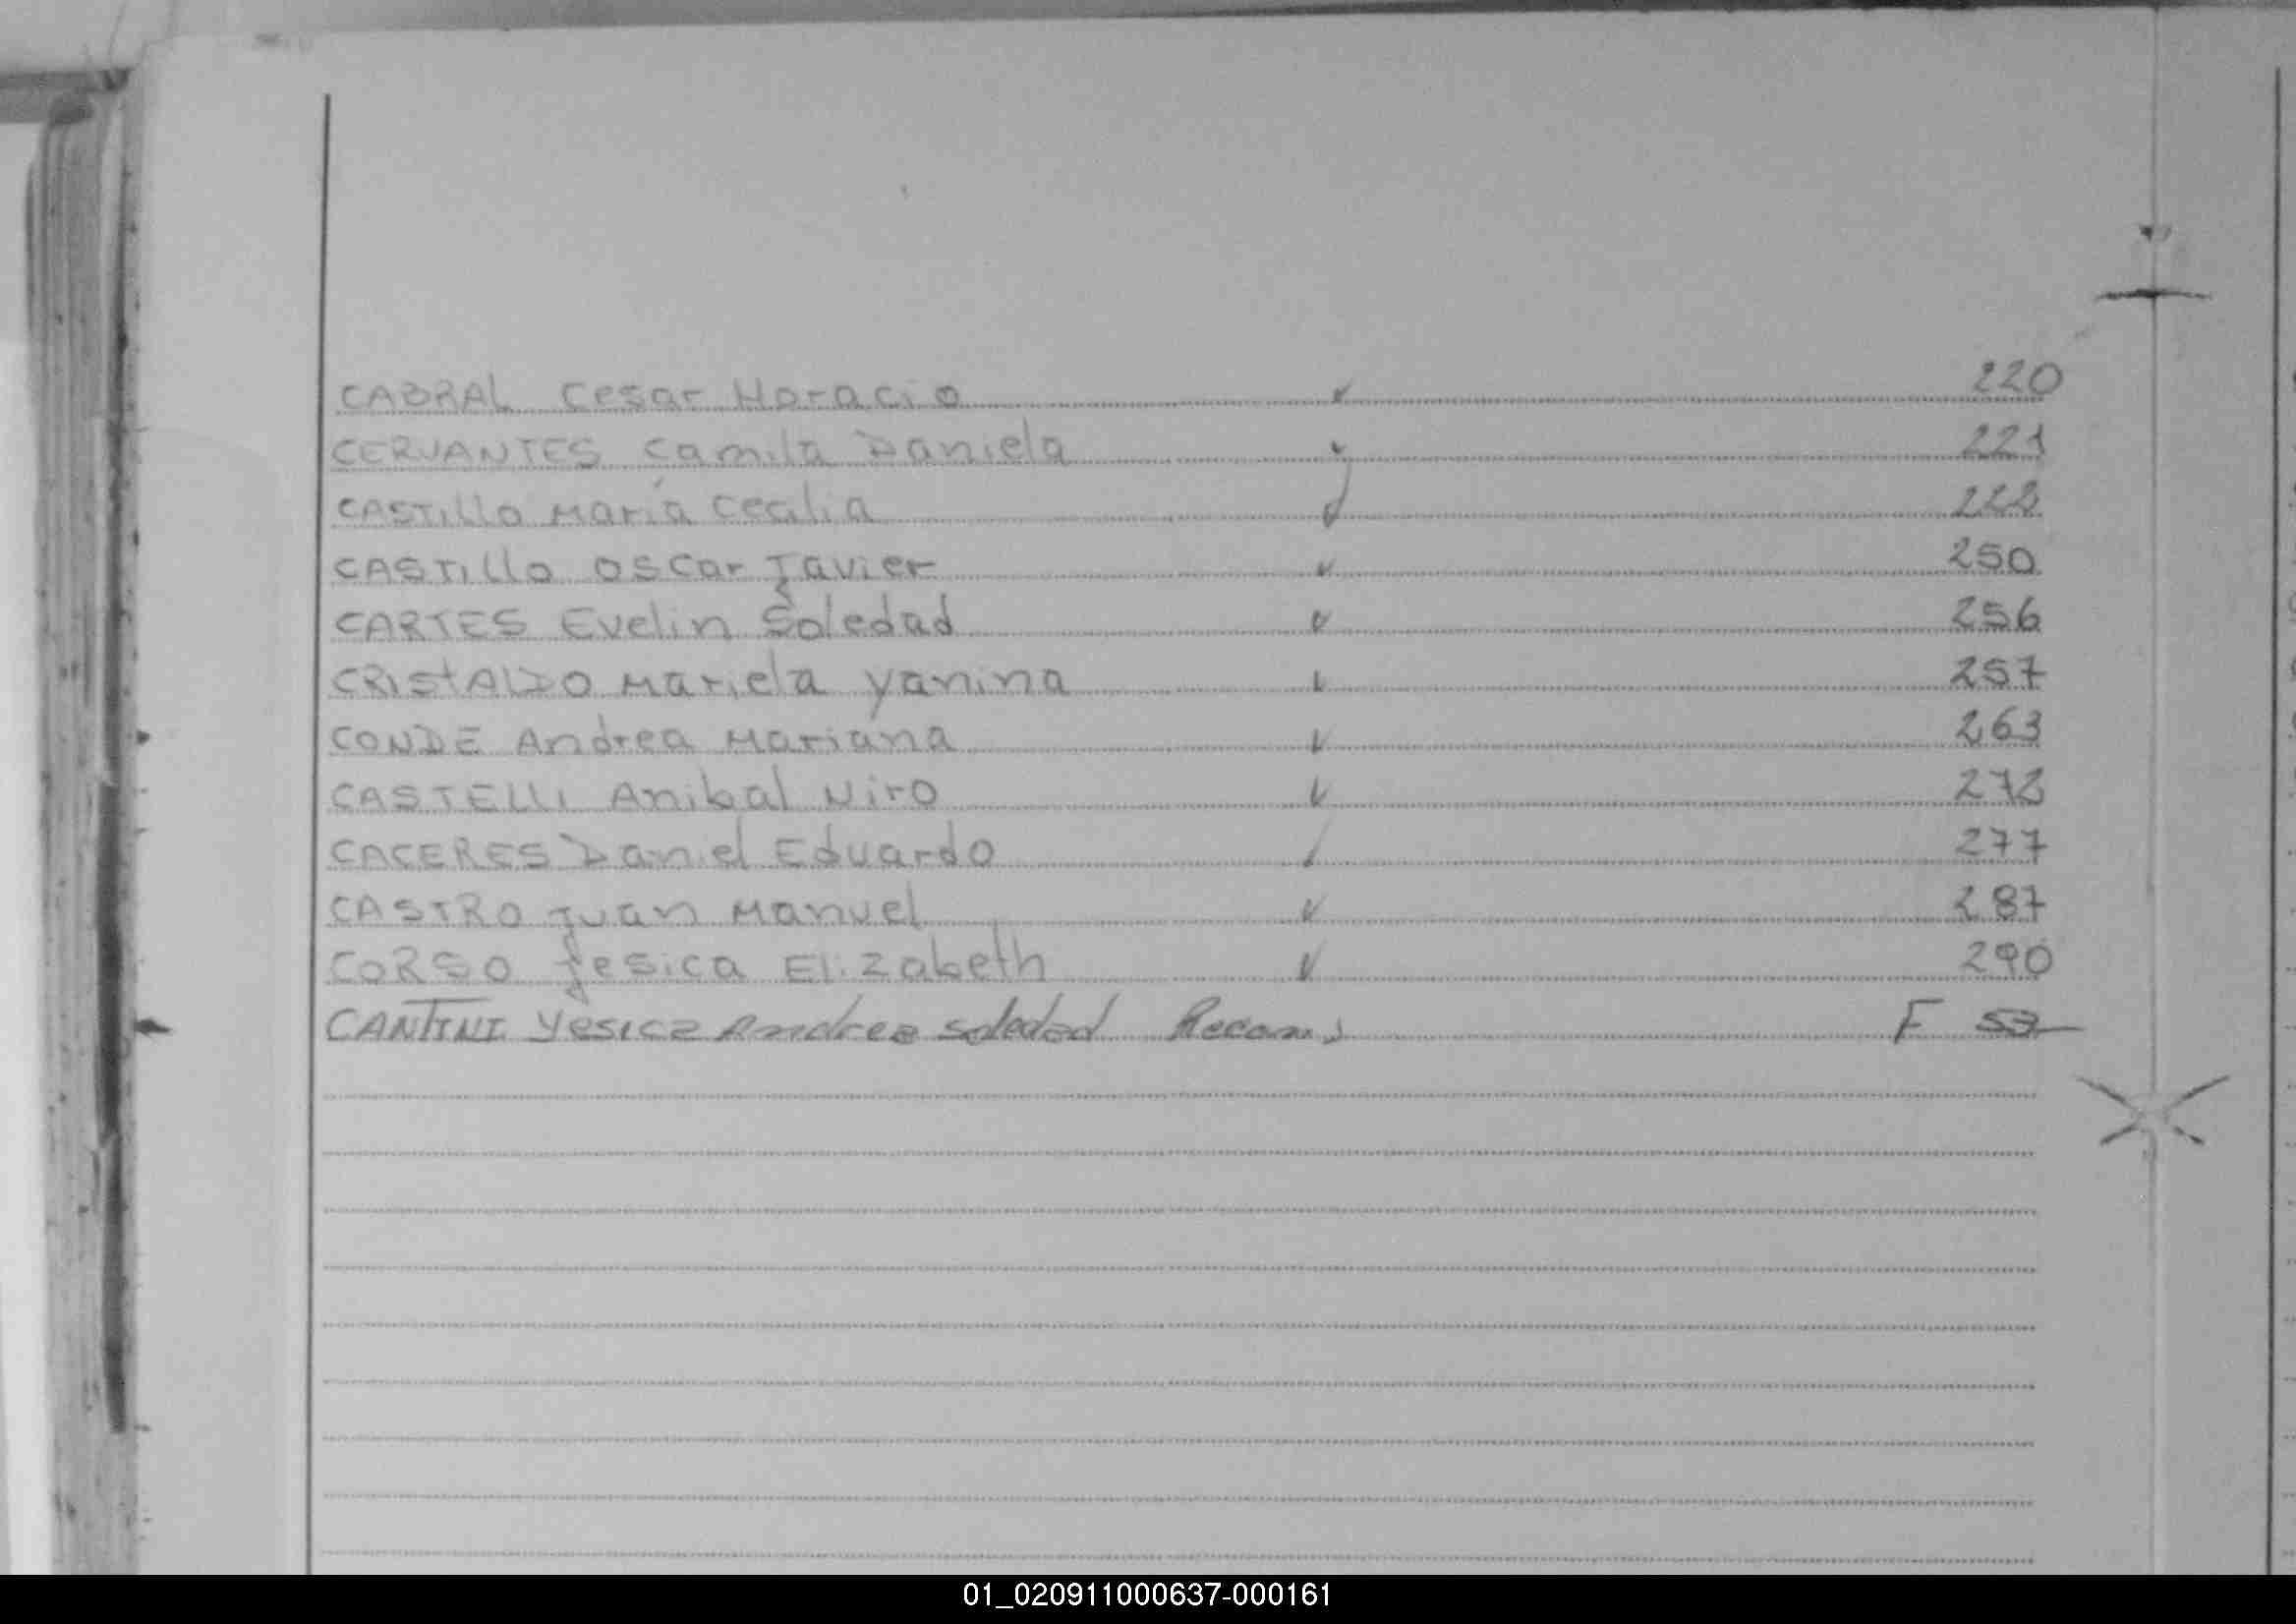 CABRAL Cesar Horacio ✓ 220
CERVANTES Camila Daniela ✓ 221
CASTILLO María Cecilia ✓ 222
CASTILLO OSCar Javier ✓ 250
CARTES Evelin Soledad ✓ 256
CRIStALDO Mariela Yanina ✓ 257
CONDE Andrea Mariana ✓ 263
CASTELLI Anibal Niro ✓ 272
CACERES Daniel Eduardo ✓ 277
CASTRO Juan Manuel ✓ 287
CORSO Jesica Elizabeth ✓ 290
CANTINI Yesica Andrea Soledad Recon. F 53
01_020911000637-000161